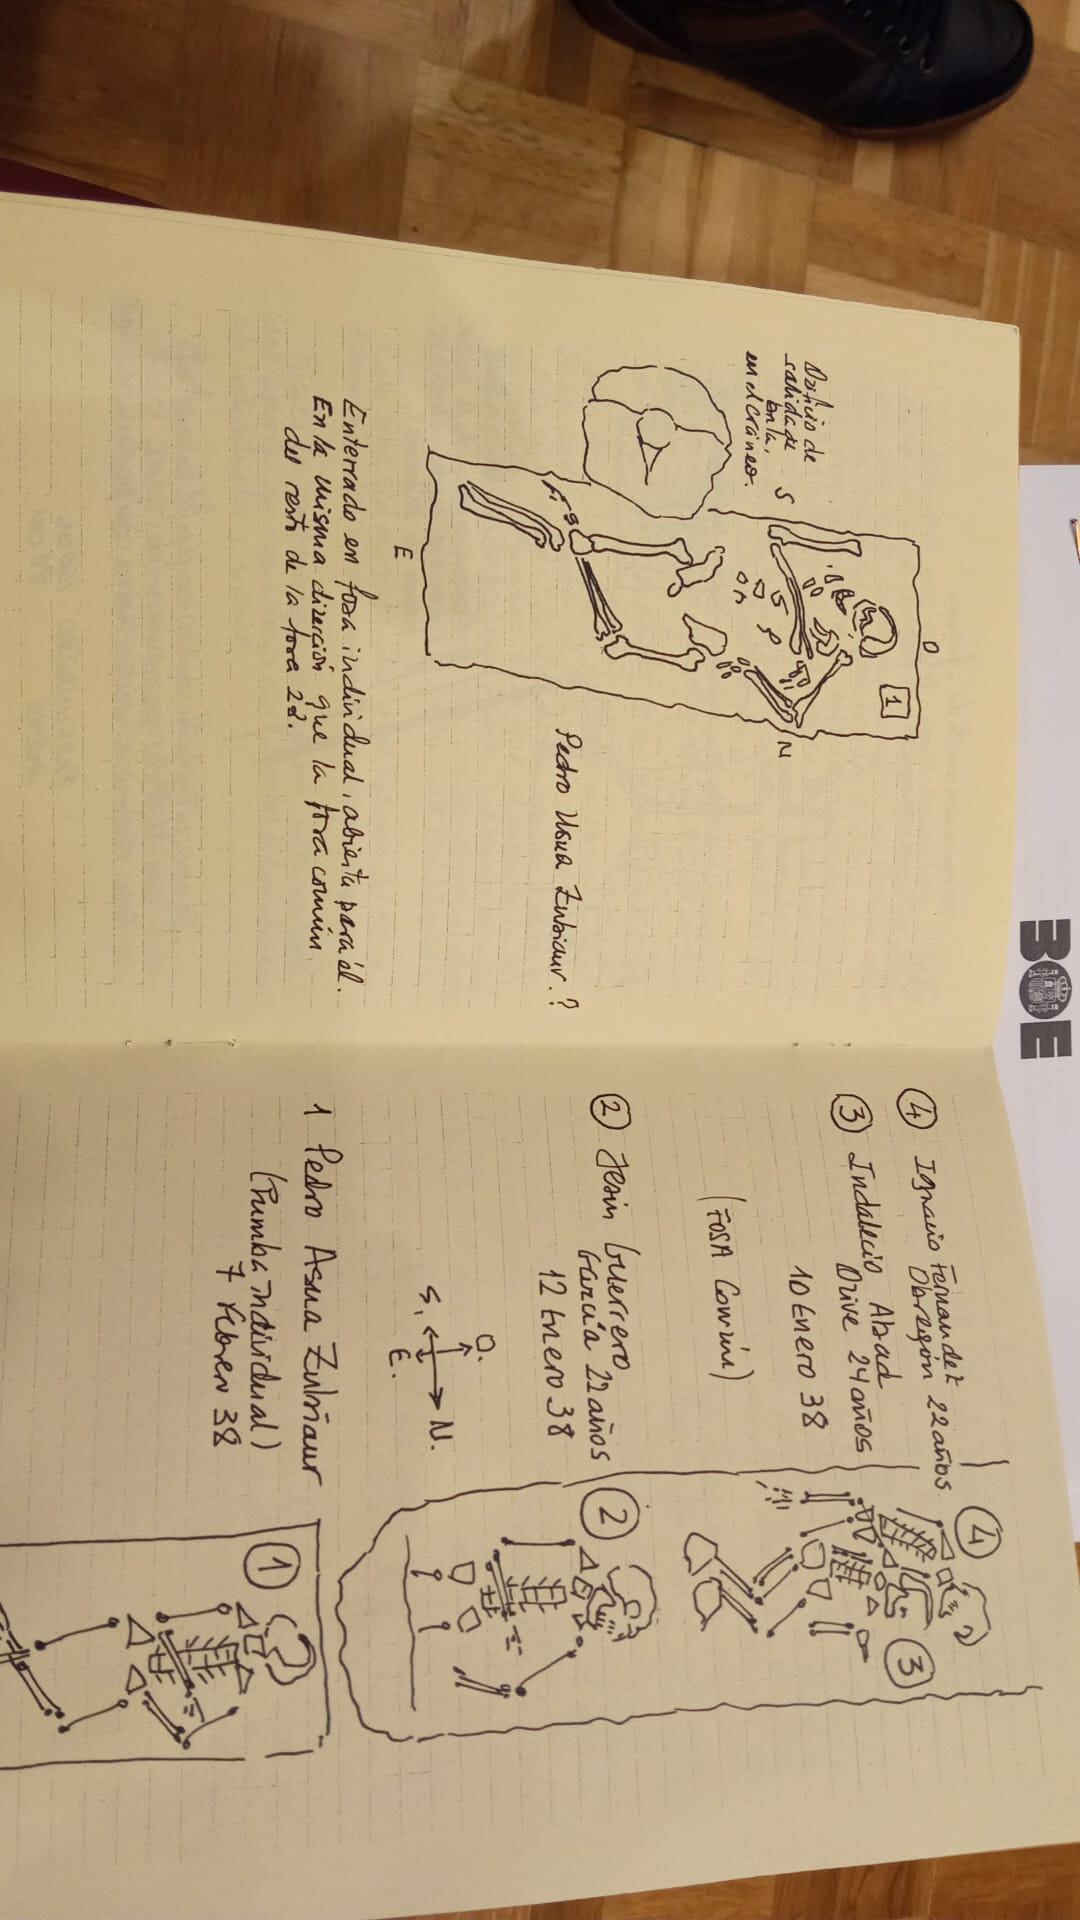 Orificio de
salida de
bala,
en el cráneo.
S
O
1
N
E
Pedro Usua Zubiaur.?
Enterrado en fosa individual, abierta para él.
En la misma dirección que la fosa común
del resto de la fosa 22.
BOE
④ Ignacio Fernandez
Obregón 22 años
③ Indalecio Abad
Orive 24 años
10 Enero 38
(FOSA Común)
② Jesús Guerrero
García 22 años
12 Enero 38
O.
S. N.
E.
1 Pedro Asua Zubiaur
(Tumba individual)
7 Febrero 38
④
③
②
①